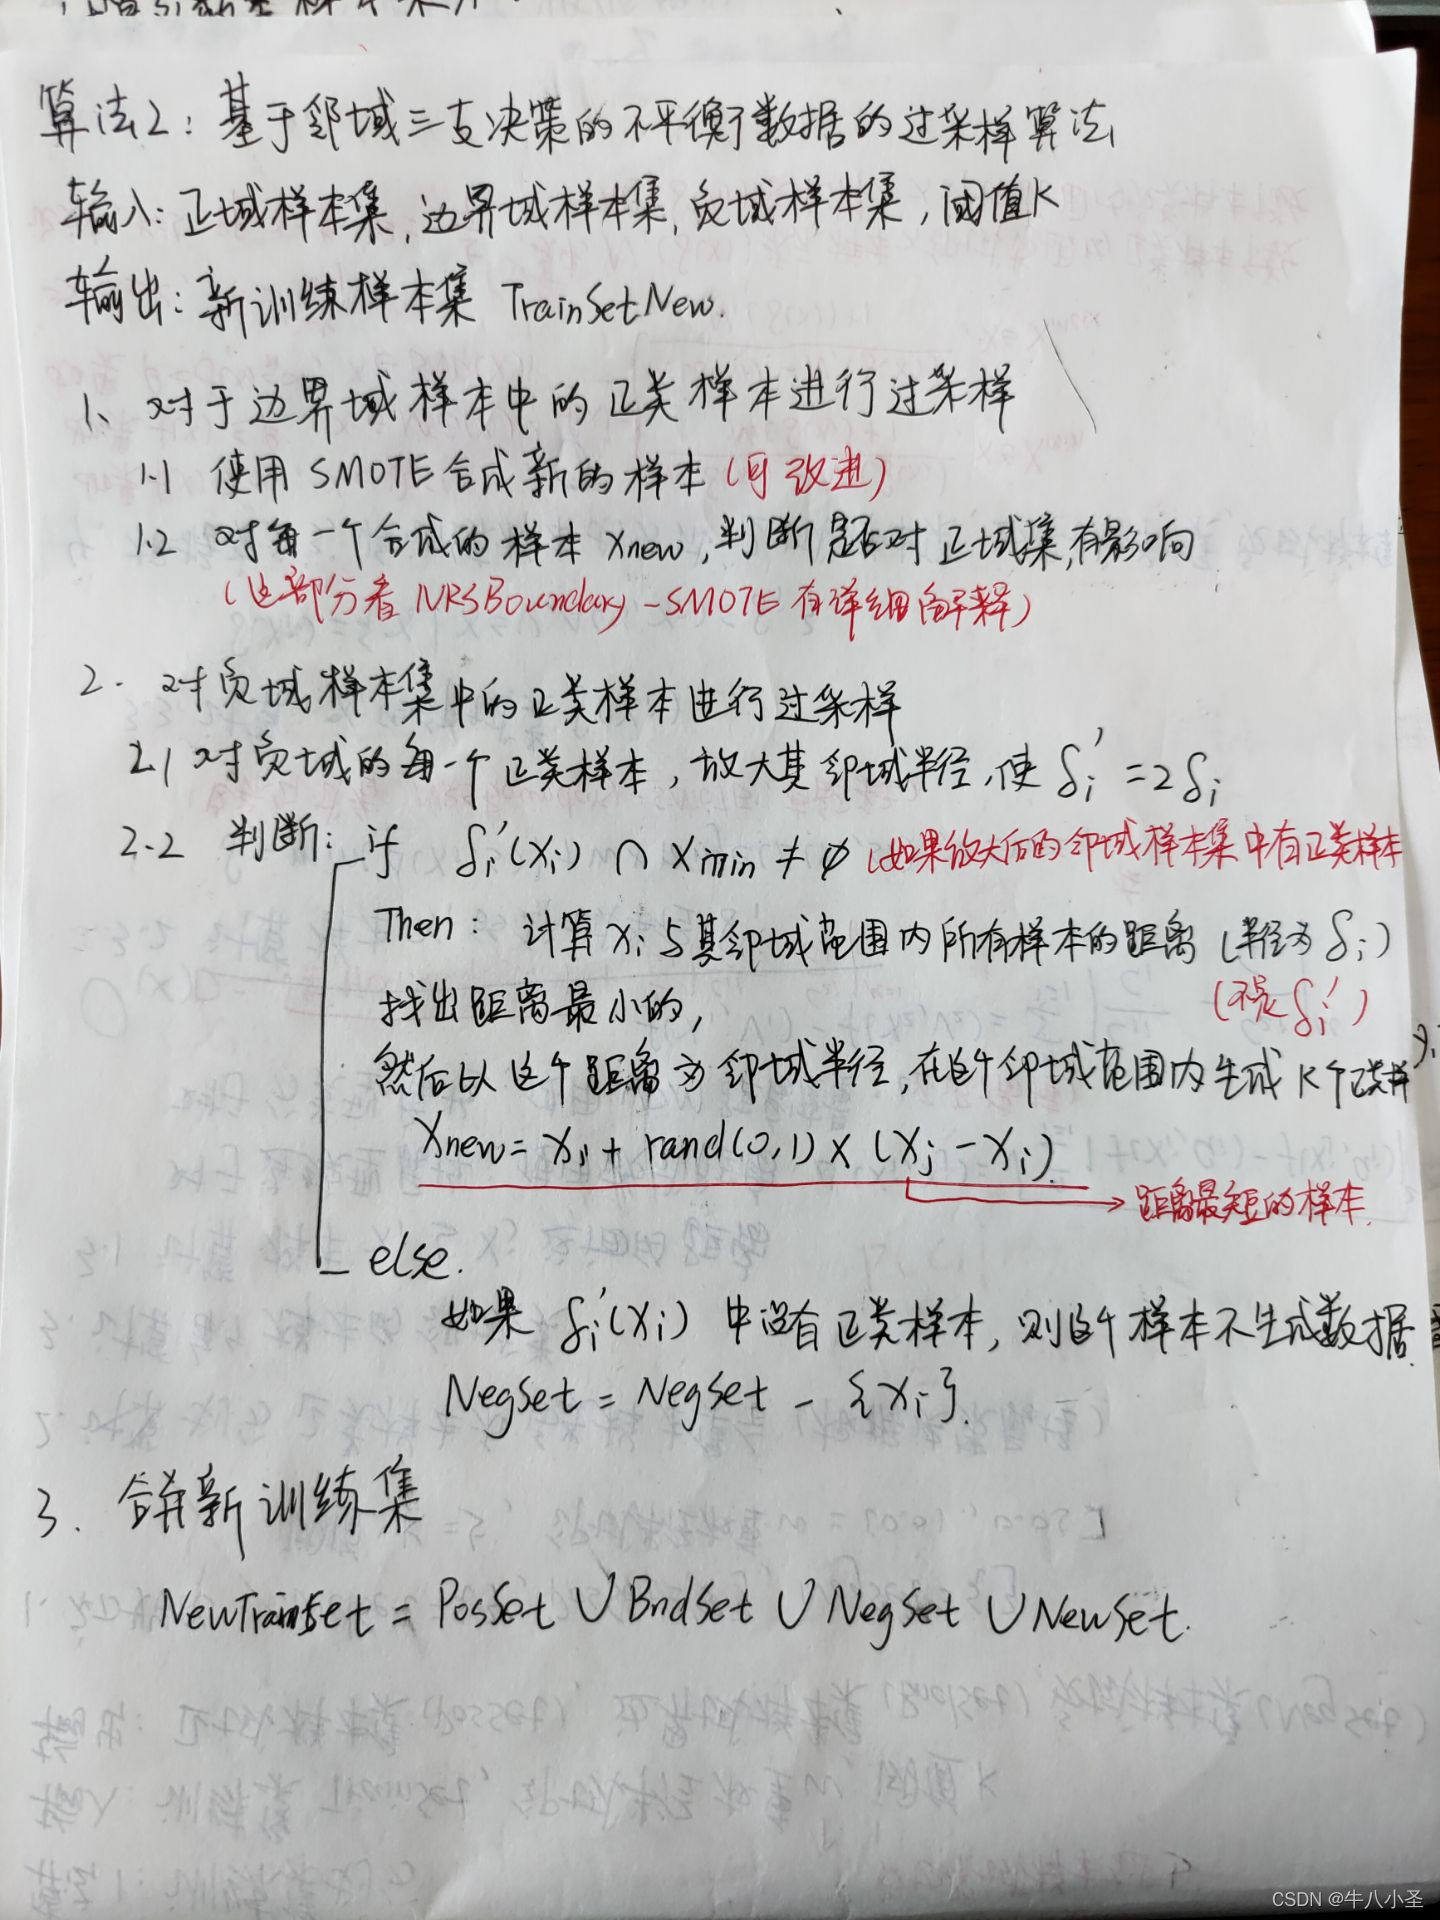 算法2：基于邻域三支决策的不平衡数据的过采样算法
输入：正域样本集，边界域样本集，负域样本集，阈值K
输出：新训练样本集 TrainSetNew.
1、对于边界域样本中的正类样本进行过采样
1.1 使用SMOTE合成新的样本（可改进）
1.2 对每一个合成的样本 Xnew，判断是否对正域集有影响
（这部分看NRSBoundary-SMOTE有详细解释）
2. 对负域样本集中的正类样本进行过采样
2.1 对负域的每一个正类样本，放大其邻域半径，使 δi' = 2δi
2.2 判断：if δi'(Xi) ∩ Xmin ≠ ∅（如果放大后的邻域样本集中有正类样本
Then：计算Xi与其邻域范围内所有样本的距离（半径为δi）
找出距离最小的，（不是δi'）
然后以这个距离为邻域半径，在这个邻域范围内生成K个正类样
Xnew = Xi + rand(0,1) × (Xj - Xi).
距离最短的样本.
else.
如果 δi'(Xi) 中没有正类样本，则这个样本不生成数据.
NegSet = NegSet - {Xi}.
3. 合并新训练集
NewTrainSet = PosSet ∪ BndSet ∪ NegSet ∪ NewSet.
CSDN @牛八小圣